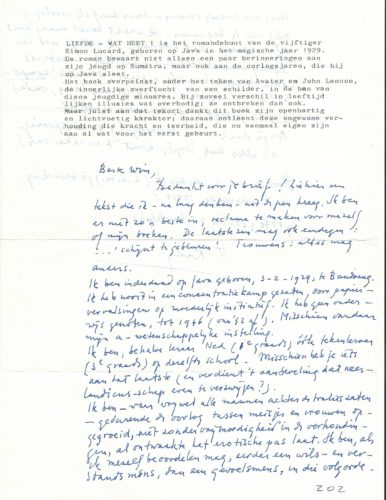 LIEFDE - WAT HEET ! is het romandebuut van de vijftiger
Simon Lucard, geboren op Java in het magische jaar 1929.
De roman bewaart niet alleen een paar herinneringen aan
zijn jeugd op Sumatra, maar ook aan de oorlogsjaren, die hij
op Java sleet.
Het boek overpeinst, onder het teken van Awater en John Lennon,
de innerlijke zwerftocht van een schilder, in de ban van
diens jeugdige minnares. Bij zoveel verschil in leeftijd
lijken illusies wat overbodig; ze ontbreken dan ook.
Maar juist aan dat tekort dankt dit boek zijn openhartig
en lichtvoetig karakter; daaraan ontleent deze ongewone ver-
houding die kracht en teerheid, die nu eenmaal eigen zijn
aan al wat voor het eerst gebeurt.
Beste Wim,
Bedankt voor je brief! Hier een
tekst die ik - na lang denken - uit de pen kreeg. Ik ben
er niet zo'n beste in, reclame te maken voor mezelf
of mijn boeken. De laatste zin mag ook eindigen:
'...! schijnt te gebeuren'. Trouwens: alles mag
anders.
Ik ben inderdaad op Java geboren, 3-2-1929, te Bandoeng.
Ik heb nooit in een concentratiekamp gezeten, door papier-
vervalsingen op moederlijk instinctief. Ik heb geen onder-
wijs genoten, tot 1946 (ons '42 af). Misschien vandaar
mijn a-wetenschappelijke instelling.
Ik ben, behalve leraar Ned (1e graads), óók tekenleraar
(3e graads) op dezelfde school. Misschien heb je iets
aan dat laatste (en verdient 't aanbeveling dat neer-
landicus-schap even te verzwijgen?).
Ik ben - waar vrijwel alle mannen achter de tralies zaten
- gedurende de oorlog tussen meisjes en vrouwen op-
gegroeid, niet zonder vrijmoedigheid in de verhoudin-
gen, al ontwaakt het erotische pas laat. Ik ben, als
ik mezelf beoordelen mag, eerder een wils- en ver-
standsmens, dan een gevoelsmens, in die volgorde.
202